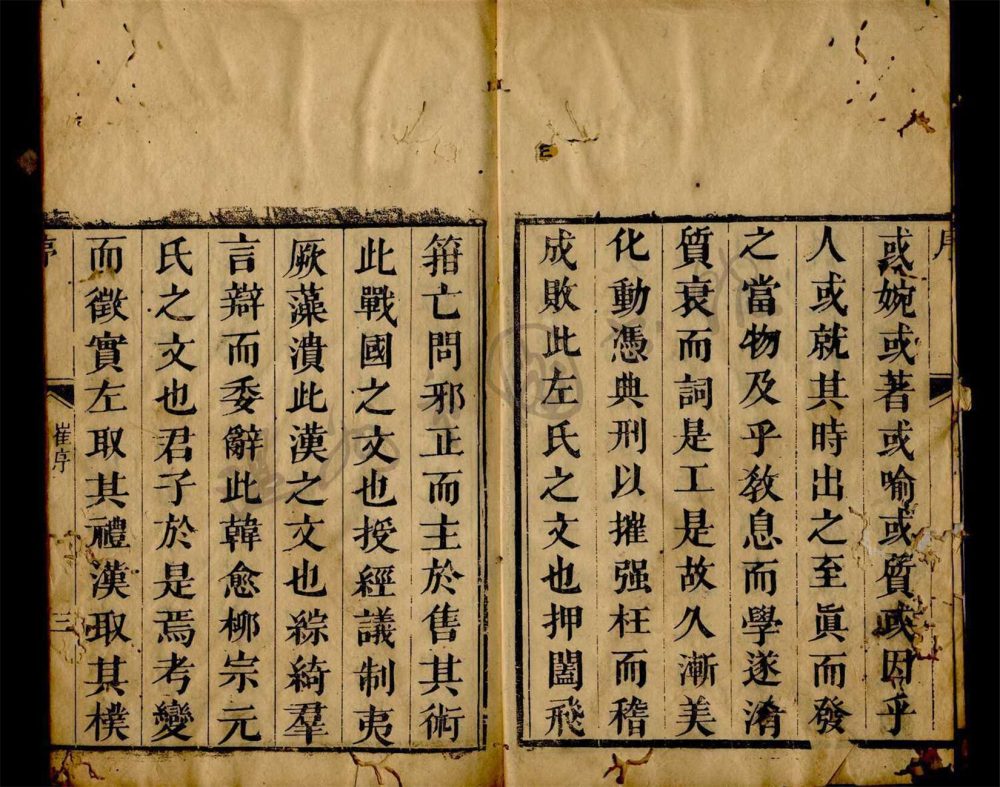 序
或婉或著或喻或質或因乎
人或就其時出之至眞而發
之當物及乎敎息而學遂淆
質衰而詞是工是故久漸美
化動憑典刑以摧强枉而稽
成敗此左氏之文也押闔飛
箝亡問邪正而主於售其術
此戰國之文也授經議制夷
厥藻潰此漢之文也綜綺羣
言辯而委辭此韓愈柳宗元
氏之文也君子於是焉考變
而徵實左取其禮漢取其樸
序
崔序
三